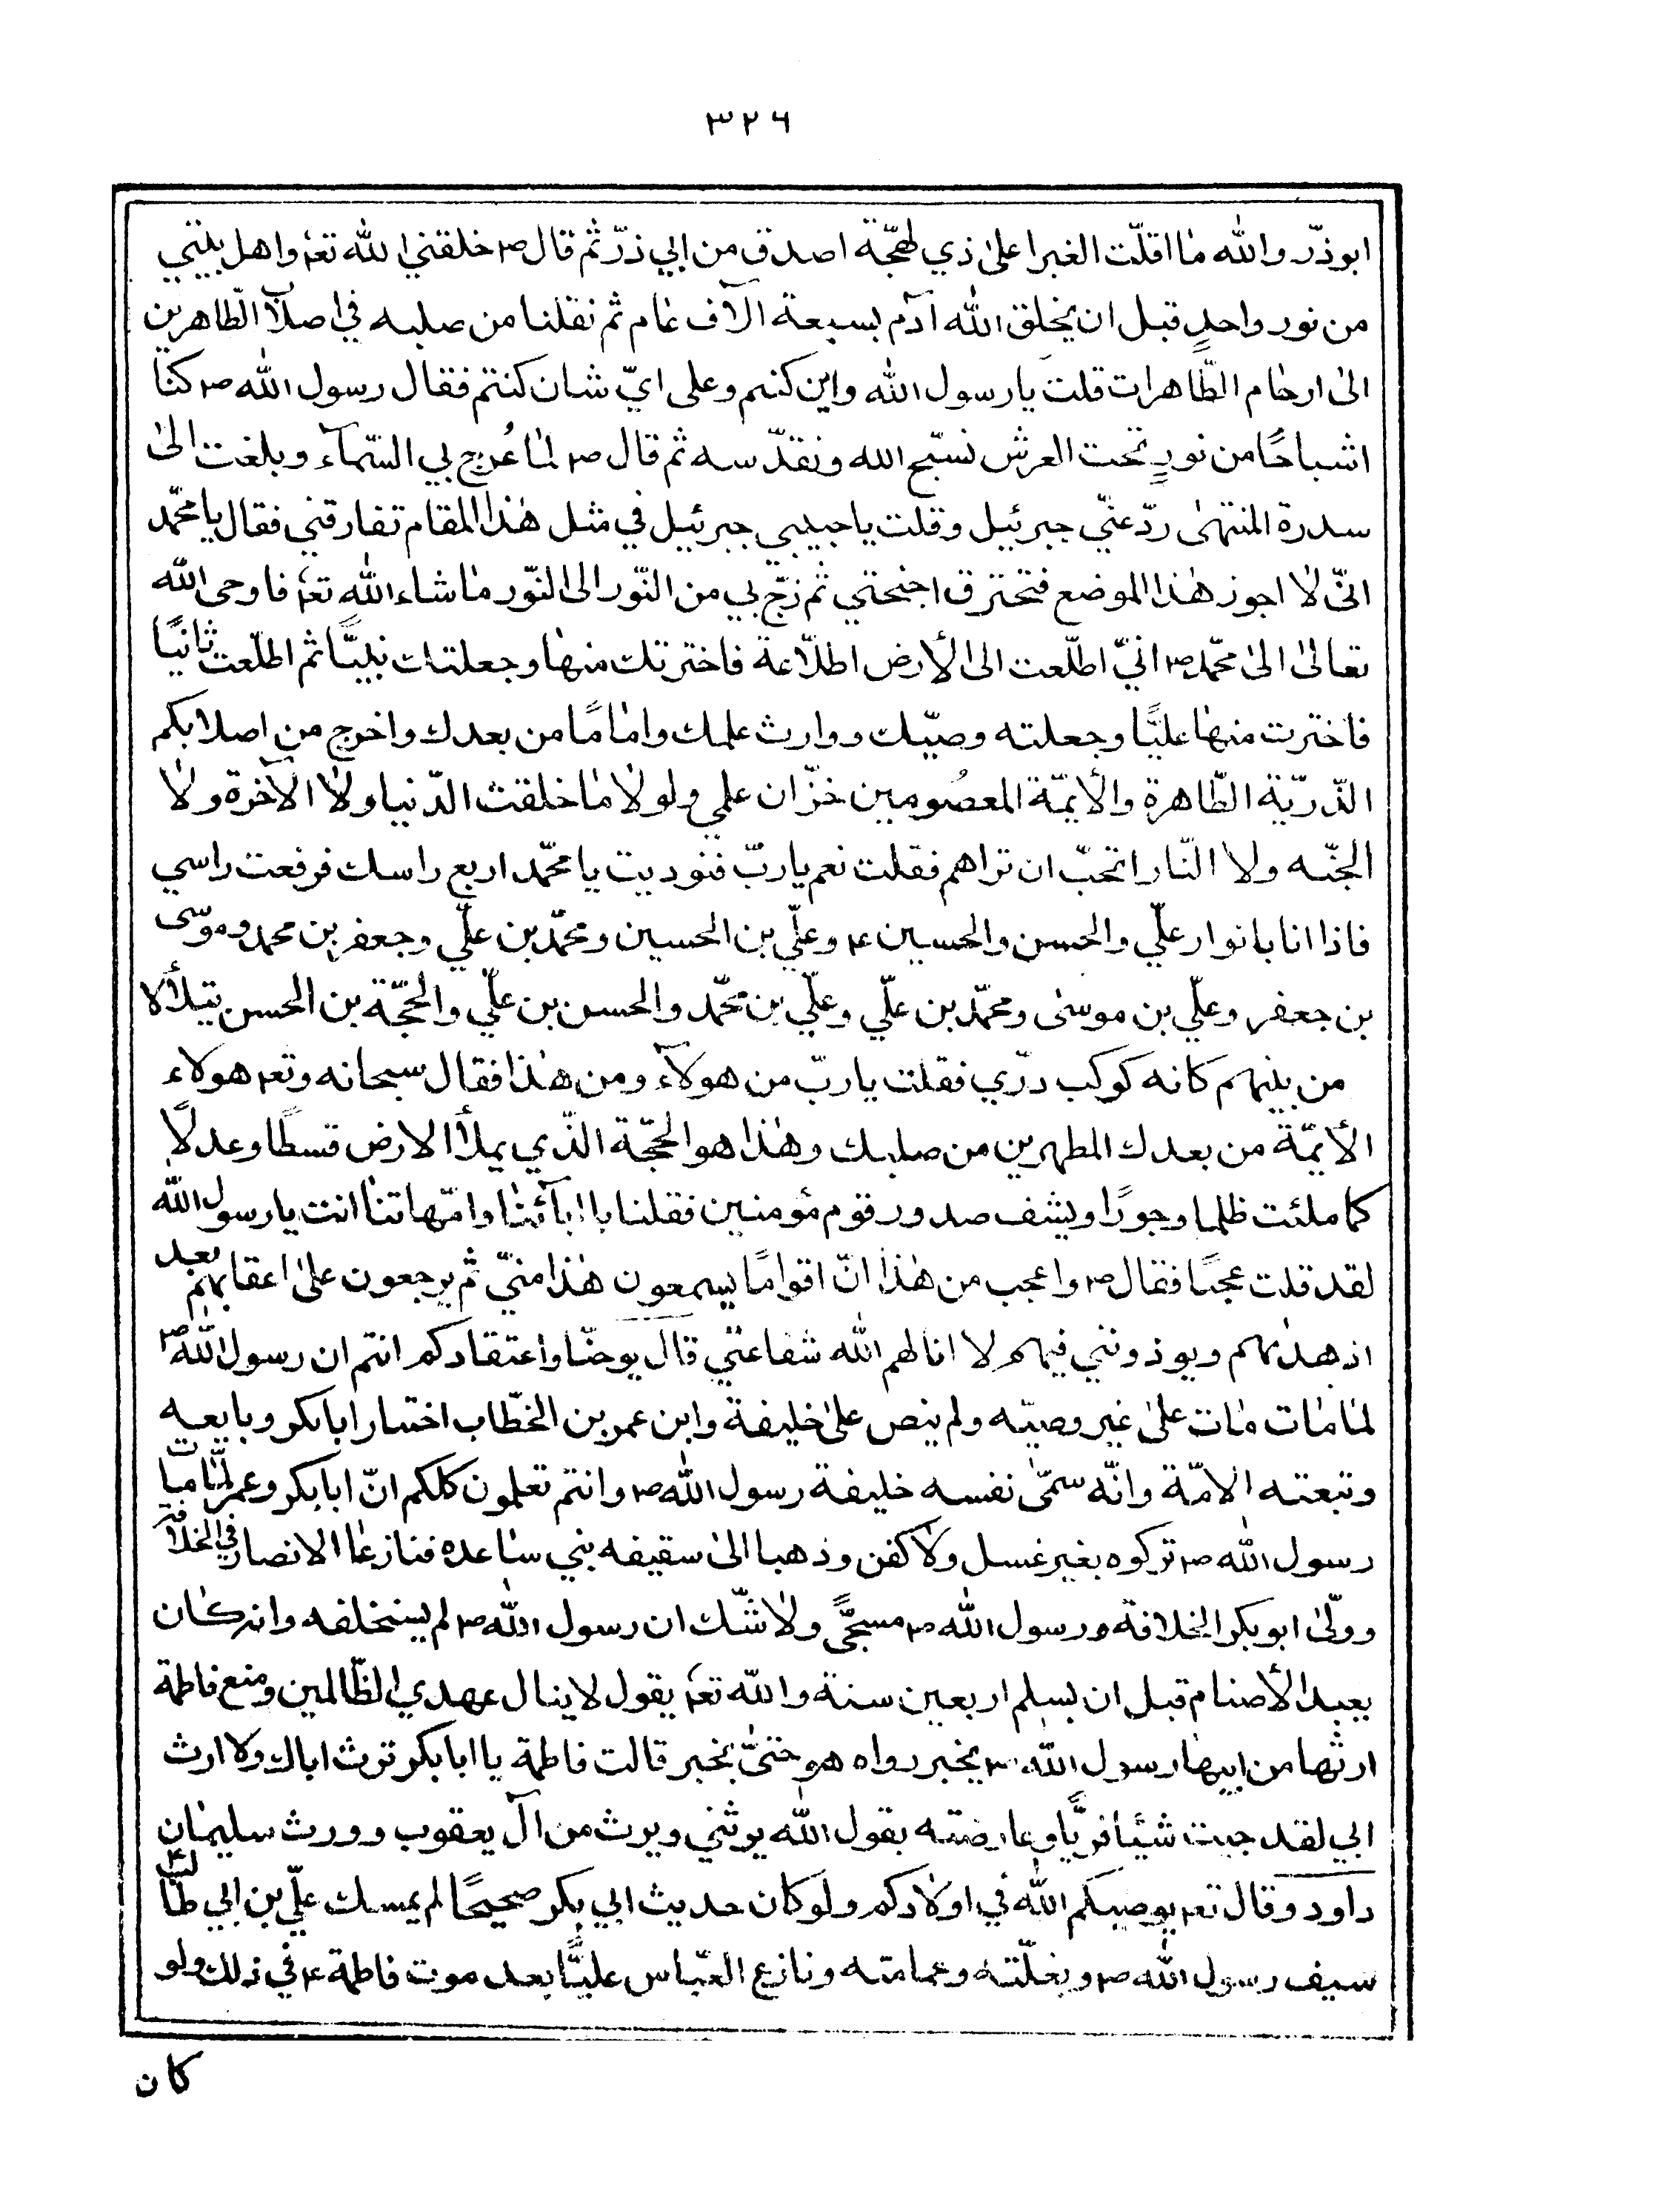 ٣٢٦
ابوذرّ والله ما اقلّت الغبرا على ذي لهجّة اصدق من ابي ذرّ ثم قال ص خلقني الله تعم واهل بيتي
من نور واحدٍ قبل ان يخلق الله آدم بسبعة آلاف عام ثم نقلنا من صلبه في اصلاب الطّاهرين
الى ارحام الطّاهرات قلت يا رسول الله واين كنتم وعلى ايّ شان كنتم فقال رسول الله ص كنا
اشباحًا من نورٍ تحت العرش نسبّح الله ونقدّسه ثم قال ص لما عُرج بي السّمآء وبلغت الى
سدرة المنتهى ردّ عنّي جبرئيل وقلت يا حبيبي جبرئيل في مثل هذا المقام تفارقني فقال يا محمّد
انّي لا اجوز هذا الموضع فتحترق اجنحتي ثم زجّ بي من النّور الى النّور ما شاء الله تعم فاوحى الله
تعالى الى محمّد ص انّي اطلّعت الى الأرض اطلاّعة فاخترتك منها وجعلتك نبيًّا ثم اطلّعت ثانيًا
فاخترت منها عليًّا وجعلته وصيّك ووارث علمك وامامًا من بعدك واخرج من اصلابكم
الذّريّة الطّاهرة والأيمّة المعصُومين خزّان علمي ولولا ما خلقت الدّنيا ولا الآخرة ولا
الجنّه ولا النّار اتحبّ ان تراهم فقلت نعم يا ربّ فنوديت يا محمّد اربع راسك فرفعت راسي
فاذا انا بانوار علّي والحسن والحسين ع وعلّي بن الحسين ومحمّد بن علّي وجعفر بن محمد وموسى
بن جعفر وعلّي بن موسى ومحمّد بن علّي وعلّي بن محمّد والحسن بن علّي والحجّة بن الحسن يتلألا
من بينهم كانه كوكب درّي فقلت يا ربّ من هولآء ومن هذا فقال سبحانه وتعم هولاء
الأيمّة من بعدك المطهرين من صلبك وهذا هو الحجّة الذّي يملأ الارض قسطًا وعدلًا
كما ملئت ظلما وجورًا ويشف صدور قوم مؤمنين فقلنا باابآئنا وامّهاتنا انت يا رسول الله
لقد قلت عجبًا فقال ص واعجب من هذا انّ اقوامًا يسمعون هذا منّي ثم يرجعون على اعقابهم بعد
اذ هدٰيهم ويوذونني فيهم لا انالهم الله شفاعتي قال يوحنّا واعتقادكم انتم ان رسول الله ص
لما مات مات على غير وصيّه ولم ينص على خليفة وابن عمر بن الخطّاب اختار ابابكر وبايعه
وتبعته الامّة وانّه سمّى نفسه خليفة رسول الله ص وانتم تعلمون كلكم انّ ابابكر وعمر لمّا مات
رسول الله ص تركوه بغير غسل ولا كفن وذهبا الى سقيفه بني ساعده فنازعا الانصار في الخلافة
وولّى ابوبكر الخلافة ورسول الله ص مسجًّى ولا شّك ان رسول الله ص لم يستخلفه وانه كان
يعبد الأصنام قبل ان يسلم اربعين سنة والله تعم يقول لا ينال عهدي الظّالمين ومنع فاطمة
ارثها من ابيها رسول الله ص بخبر رواه هو حتىّ بخبر قالت فاطمة يا ابابكر ترث اباك ولا ارث
ابي لقد جيت شيئا فريًّا وعارضته بقول الله يرثني ويرث من آل يعقوب وورث سليمان
داود وقال تعم يوصيكم الله في اولادكم ولو كان حديث ابي بكر صحيحًا لم يمسك علّي بن ابي طالب ع
سيف رسول الله ص وبغلّته وعمامته ونازع العبّاس عليًّا بعد موت فاطمة ع في ذلك ولو
كان